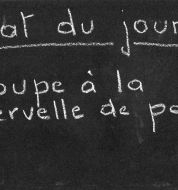 at du jour
oupe à la
ervelle de